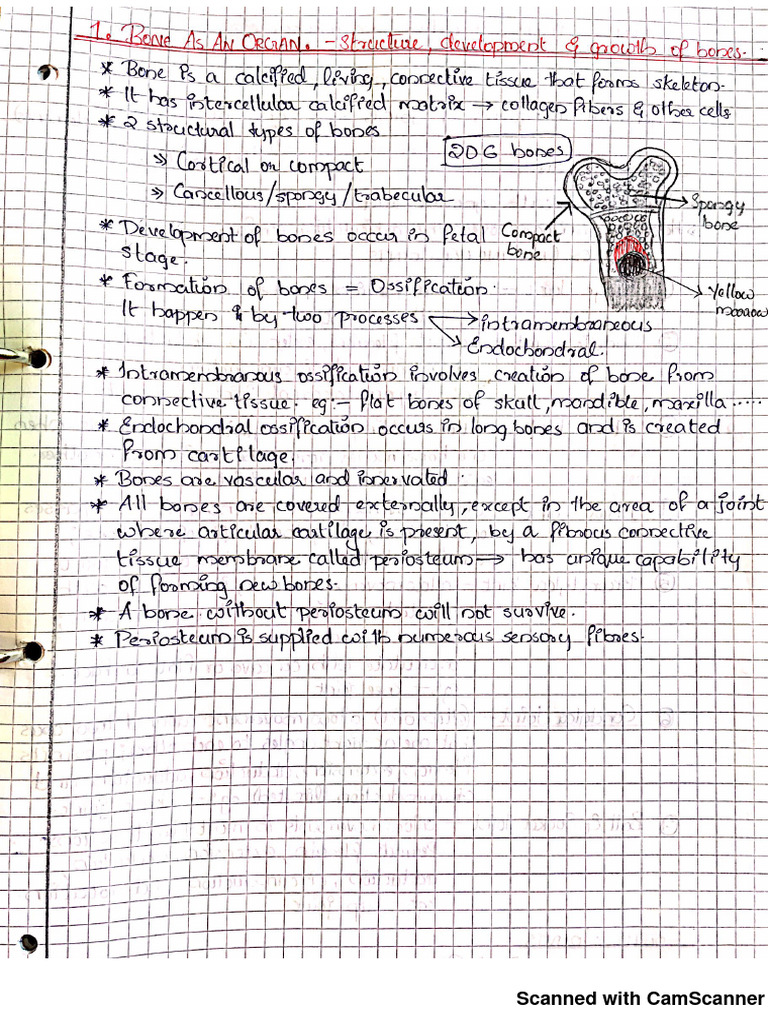 1. BONE AS AN ORGAN. - Structure, development & growth of bones.
* Bone is a calcified, living, connective tissue that forms skeleton.
* It has intercellular calcified matrix → collagen fibers & other cells
* 2 structural types of bones
206 bones
» Cortical or compact
» Cancellous/spongy/trabecular
Spongy bone
Compact bone
* Development of bones occur in fetal
stage.
* Formation of bones = Ossification.
Yellow
It happen & by two processes → intramembraneous
→ Endochondral.
* Intramembranous ossification involves creation of bone from
connective tissue. eg:- flat bones of skull, mandible, maxilla .....
* Endochondral ossification occurs in long bones and is created
from cartilage.
* Bones are vascular and innervated.
* All bones are covered externally, except in the area of a joint
where articular cartilage is present, by a fibrous connective
tissue membrane called periosteum → has unique capability
of forming new bones.
* A bone without periosteum will not survive.
* Periosteum is supplied with numerous sensory fibres.
Scanned with CamScanner